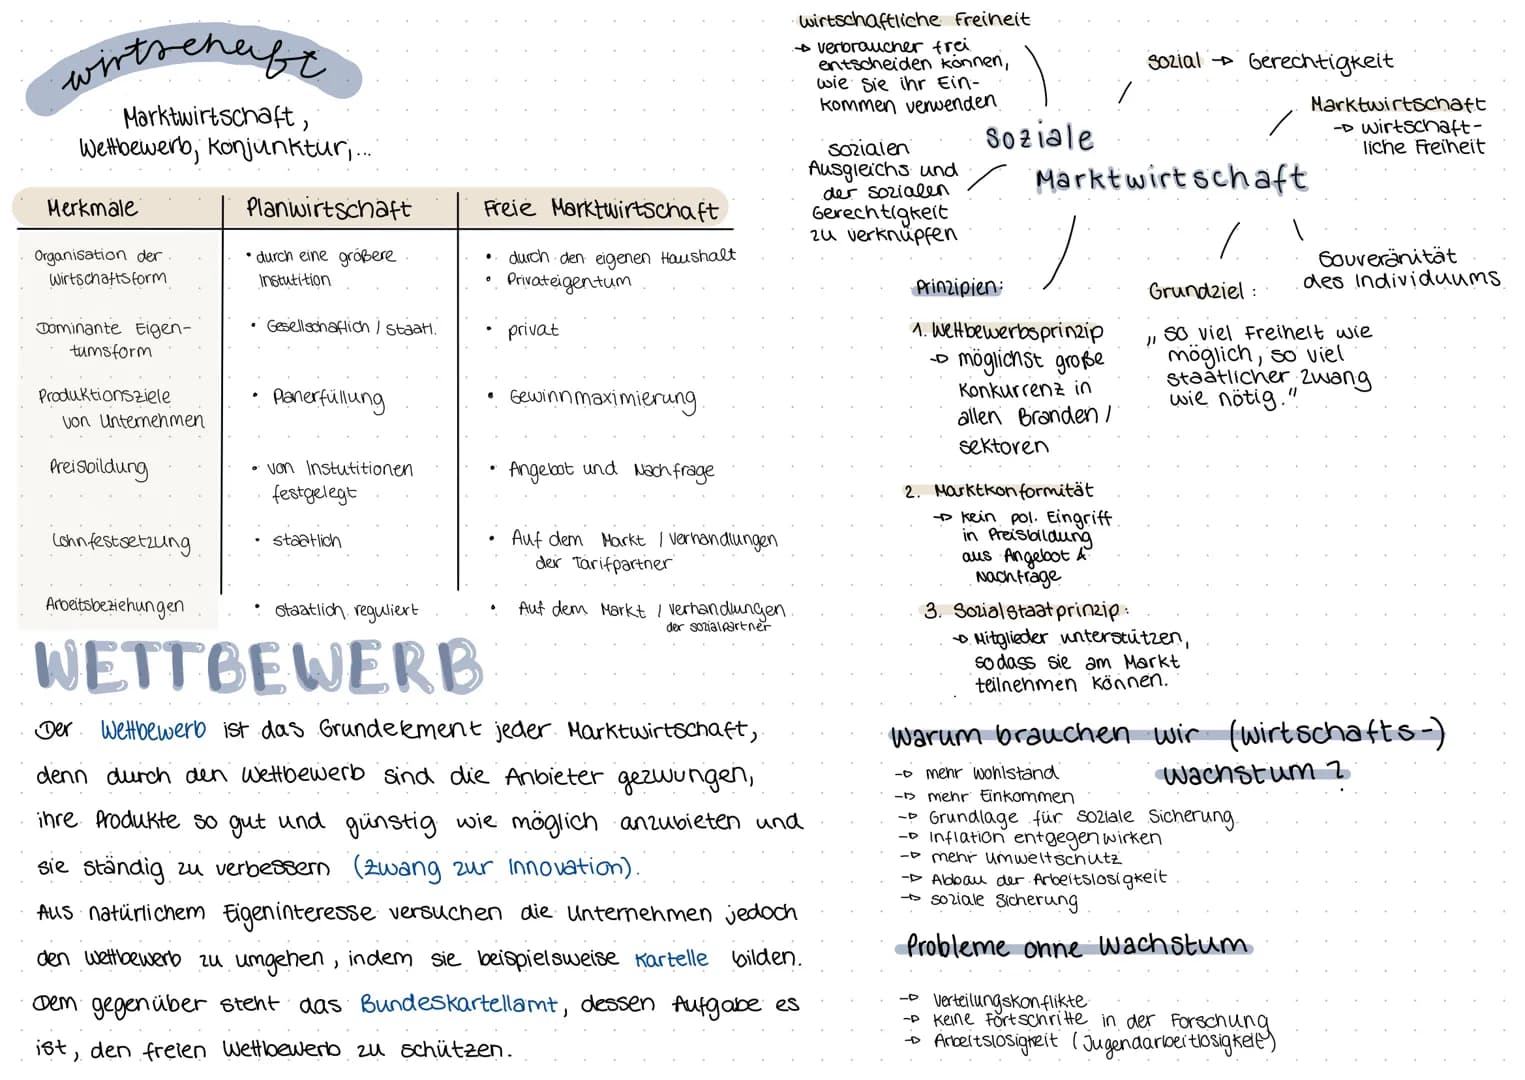 wirtschaft
Marktwirtschaft,
Wettbewerb, Konjunktur,...
Merkmale
Planwirtschaft
Freie Marktwirtschaft
Organisation der
Wirtschaftsform
• durch eine größere
Instutition
• durch den eigenen Haushalt
• Privateigentum
Dominante Eigen-
tumsform
• Gesellschaflich / staatl.
• privat
Produktionsziele
von Unternehmen
• Planerfüllung
• Gewinnmaximierung
Preisbildung
• von Instutitionen
festgelegt
• Angebot und Nachfrage
Lohnfestsetzung
• staatlich
• Auf dem Markt / Verhandlungen
der Tarifpartner
Arbeitsbeziehungen
• staatlich reguliert
• Auf dem Markt / Verhandlungen
der Sozialpartner
WETTBEWERB
Der Wettbewerb ist das Grundelement jeder Marktwirtschaft,
denn durch den Wettbewerb sind die Anbieter gezwungen,
ihre Produkte so gut und günstig wie möglich anzubieten und
sie ständig zu verbessern (Zwang zur Innovation).
Aus natürlichem Eigeninteresse versuchen die Unternehmen jedoch
den Wettbewerb zu umgehen, indem sie beispielsweise Kartelle bilden.
Dem gegenüber steht das Bundeskartellamt, dessen Aufgabe es
ist, den freien Wettbewerb zu schützen.
wirtschaftliche Freiheit
→ Verbraucher frei
entscheiden können,
wie sie ihr Ein-
kommen verwenden
sozial → Gerechtigkeit
Marktwirtschaft
→ wirtschaft-
liche Freiheit
Soziale
Marktwirtschaft
sozialen
Ausgleichs und
der sozialen
Gerechtigkeit
zu verknüpfen
Souveränität
des Individuums
Prinzipien:
1. Wettbewerbsprinzip
→ möglichst große
Konkurrenz in
allen Branden /
sektoren
2. Marktkonformität
→ kein pol. Eingriff
in Preisbildung
aus Angebot &
Nachfrage
3. Sozialstaatprinzip:
→ Mitglieder unterstützen,
sodass sie am Markt
teilnehmen können.
Grundziel:
„ so viel Freiheit wie
möglich, so viel
staatlicher Zwang
wie nötig."
Warum brauchen wir (wirtschafts-)
wachstum?
→ mehr Wohlstand
→ mehr Einkommen
→ Grundlage für soziale Sicherung
→ Inflation entgegenwirken
→ mehr Umweltschutz
→ Abbau der Arbeitslosigkeit
→ soziale Sicherung
Probleme ohne Wachstum
→ Verteilungskonflikte
→ keine Fortschritte in der Forschung
→ Arbeitslosigkeit (Jugendarbeitlosigkeit)